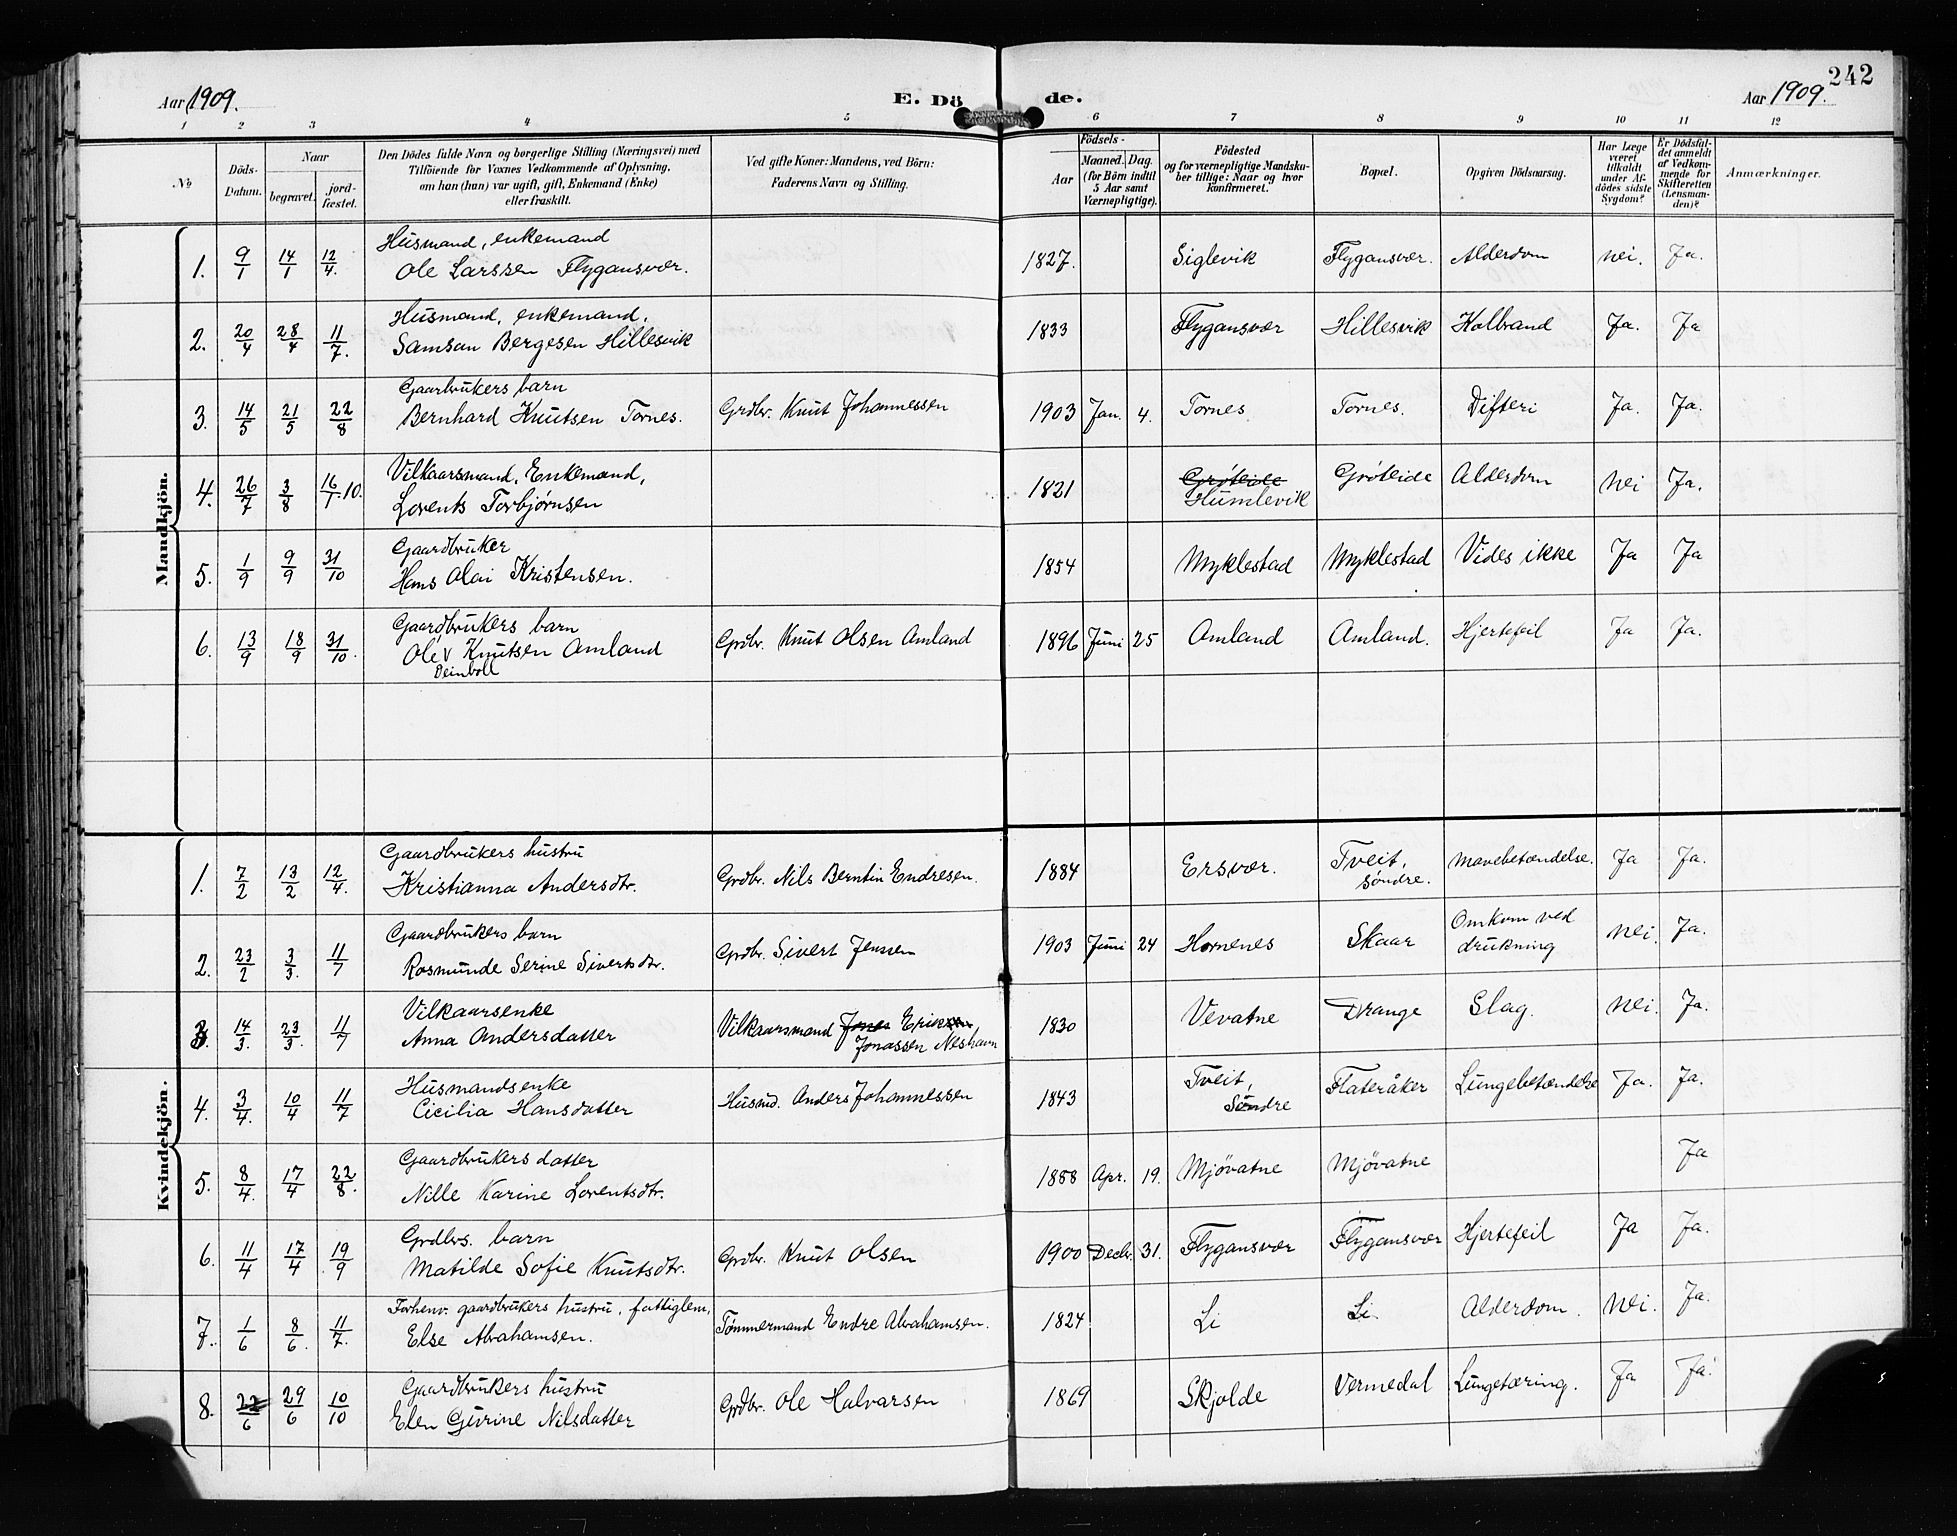 242
Aar 1909. E. Dö de. Aar 1909.
1 2 3 4 5 6 7 8 9 10 11 12
№ Döds-Datum. Naar begravet. jord-fæstet. Den Dödes fulde Navn og borgerlige Stilling (Næringsvei) med Tilföiende for Voxnes Vedkommende af Oplysning, om han (hun) var ugift, gift, Enkemand (Enke) eller fraskilt. Ved gifte Koner: Mandens, ved Börn: Faderens Navn og Stilling. Födsels- Aar Maaned. Dag. (for Börn indtil 5 Aar samt Værnepligtige). Födested og for værnepligtige Mandskaber tillige: Naar og hvor konfirmeret. Bopæl. Opgiven Dödsaarsag. Har Læge været tilkaldt under Afdödes sidste Sygdom? Er Dödsfaldet anmeldt af Vedkommende for Skifteretten (Lensmanden)? Anmærkninger.
Mandkjön.
1. 9/1 14/1 12/4. Husmand, enkemand
Ole Larssen Flygansvær. 1827. Siglevik Flygansvær. Alderdom nei. Ja.
2. 20/4 28/4 11/7. Husmand, enkemand.
Samson Bergesen Hillesvik 1833 Flygansvær Hillesvik Kolbrand Ja. Ja
3. 14/5 21/5 22/8 Gaarbrukers barn
Bernhard Knutsen Tornes. Grdbr. Knut Johannessen 1903 Jan. 4. Tornes Tornes. Difteri Ja. Ja.
4. 26/7 3/8 16/1.10. Vilkaarsmand, Enkemand,
Lorents Torbjørnsen 1821 Grøteide Humlevik Grøteide Alderdom nei Ja.
5. 1/9 9/9 31/10 Gaardbruker
Hans Olai Kristensen. 1854 Myklestad Myklestad Vides ikke Ja Ja
6. 13/9 18/9 31/10. Gaardbrukers barn
Ole Knutsen Amland
Deinboll Grdbr. Knut Olsen Amland 1896 Juni 25 Amland Amland. Hjertefeil Ja Ja.
Kvindekjön.
1. 7/2 13/2 12/4. Gaardbrukers hustru
Kristianna Andersdtr. Grdbr. Nils Berntin Endresen. 1884 Ersvær. Tveit, søndre. Mavebetændelse. Ja Ja.
2. 23/2 3/3. 11/7 Gaardbrukers barn
Rosmunde Serine Sivertsdtr. Grdbr. Sivert Jensen 1903 Juni 24 Hornenes Skaar Omkom ved drukning nei. Ja.
3. 14/3. 23/3. 11/7 Vilkaarsenke
Anna Andersdatter Vilkaarsmand Jones Eriksen
Jonassen Neshavn 1830 Vevatne Drange Slag. nei. Ja.
4. 3/4. 10/4 11/7 Husmandsenke
Cicilia Hansdatter Husmd. Anders Johannessen 1843 Tveit, Søndre Flateråker Lungebetændelse Ja. Ja.
5. 8/4. 17/4 22/8. Gaardbrukers datter
Nille Karine Lorentsdtr. 1888 Apr. 19. Mjövatne Mjövatne Ja
6. 11/4 17/4 19/9 Grdbrs. barn
Matilde Sofie Knutsdtr. Grdbr. Knut Olsen 1900 Decbr. 31. Flygansvær Flygansvær Hjertefeil Ja Ja.
7. 1/6 8/6. 11/7. Forhenv. gaardbrukers hustru, fattiglem,
Else Abrahamsen. Tømmermand Endre Abrahamsen. 1824 Li Li Alderdom. nei. Ja.
8. 22/6 29/6 10/10 Gaardbrukers hustru
Elen Gurine Nilsdatter Grdbr. Ole Halvarsen 1869 Skjolde Vermedal Lungetæring. Ja Ja.